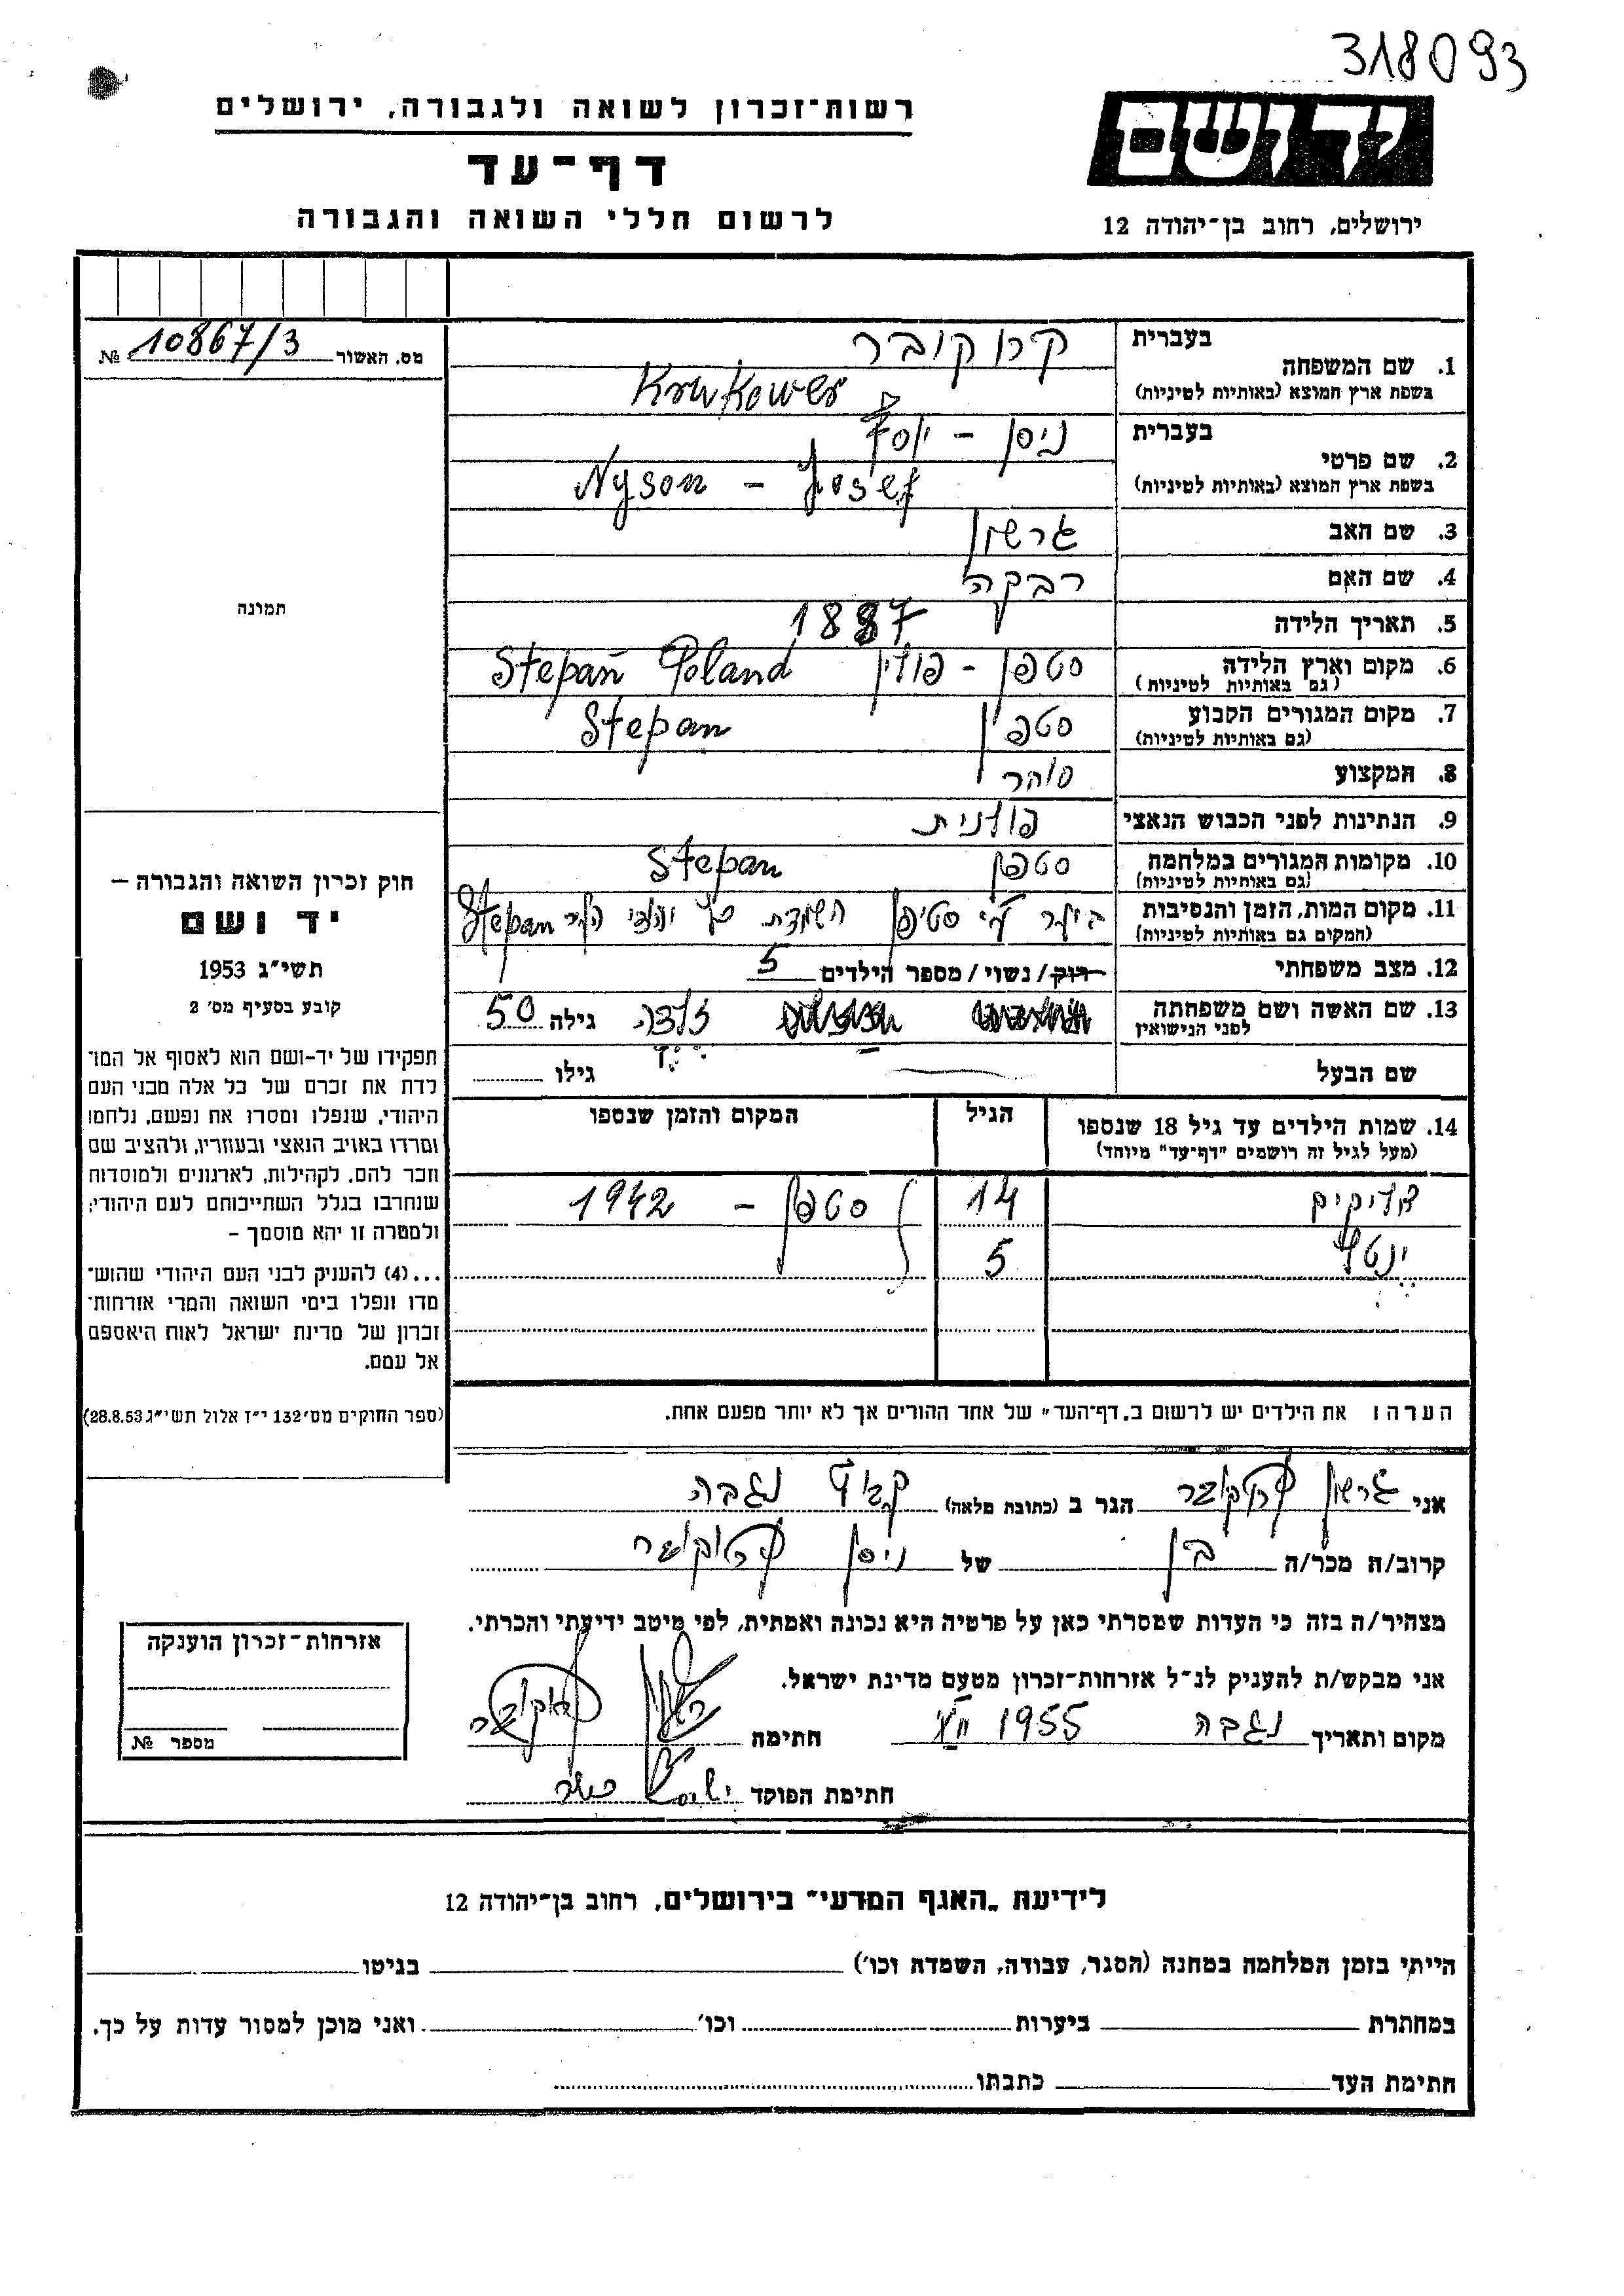 318093
רשות־זכרון לשואה ולגבורה, ירושלים
דף־עד
לרשום חללי השואה והגבורה
יד ושם
ירושלים, רחוב בן־יהודה 12
מס. האשור 10867/3 №
תמונה
חוק זכרון השואה והגבורה –
יד ושם
תשי״ג 1953
קובע בסעיף מס׳ 2
תפקידו של יד-ושם הוא לאסוף אל המו־
לדת את זכרם של כל אלה מבני העם
היהודי, שנפלו ומסרו את נפשם, נלחמו
ומרדו באויב הנאצי ובעוזריו, ולהציב שם
וזכר להם, לקהילות, לארגונים ולמוסדות
שנחרבו בגלל השתייכותם לעם היהודי;
ולמטרה זו יהא מוסמך –
...(4) להעניק לבני העם היהודי שהוש־
מדו ונפלו בימי השואה והמרי אזרחות־
זכרון של מדינת ישראל לאות היאספם
אל עמם.
(ספר החוקים מס׳ 132 י״ז אלול תשי״ג 28.8.53)
1. שם המשפחה
בעברית קרוקובר
בשפת ארץ המוצא (באותיות לטיניות) Krukower
2. שם פרטי
בעברית ניסן – יוסף
בשפת ארץ המוצא (באותיות לטיניות) Nyson – Josef
3. שם האב גרשון
4. שם האם רבקה
5. תאריך הלידה 1887
6. מקום וארץ הלידה סטפן – פולין Stepań Poland
(גם באותיות לטיניות)
7. מקום המגורים הקבוע סטפן Stepan
(גם באותיות לטיניות)
8. המקצוע סוחר
9. הנתינות לפני הכבוש הנאצי פולנית
10. מקומות המגורים במלחמה סטפן Stepan
(גם באותיות לטיניות)
11. מקום המות, הזמן והנסיבות ביער ע״י סטיפן השמדת Stepan
(המקום גם באותיות לטיניות)
12. מצב משפחתי רווק/נשוי/מספר הילדים 5
13. שם האשה ושם משפחתה זלדה גילה 50
לפני הנישואין
שם הבעל גילו
14. שמות הילדים עד גיל 18 שנספו הגיל המקום והזמן שנספו
(מעל לגיל זה רושמים "דף־עד" מיוחד)
14 סטפן – 1942
ינטל 5
הערה: את הילדים יש לרשום ב„דף־העד״ של אחד ההורים אך לא יותר מפעם אחת.
אני גרשון קרוקובר הגר ב (כתובת מלאה) נגבה
קרוב/ה מכר/ה בן של ניסן קרוקובר
מצהיר/ה בזה כי העדות שמסרתי כאן על פרטיה היא נכונה ואמתית, לפי מיטב ידיעתי והכרתי.
אני מבקש/ת להעניק לנ״ל אזרחות־זכרון מטעם מדינת ישראל.
מקום ותאריך נגבה 1955 חתימה
חתימת הפוקד
אזרחות־זכרון הוענקה
מספר №
לידיעת „האגף המדעי״ בירושלים, רחוב בן־יהודה 12
הייתי בזמן המלחמה במחנה (הסגר, עבודה, השמדה וכו׳) בגיטו
במחתרת ביערות וכו׳ ואני מוכן למסור עדות על כך.
חתימת העד כתבתו